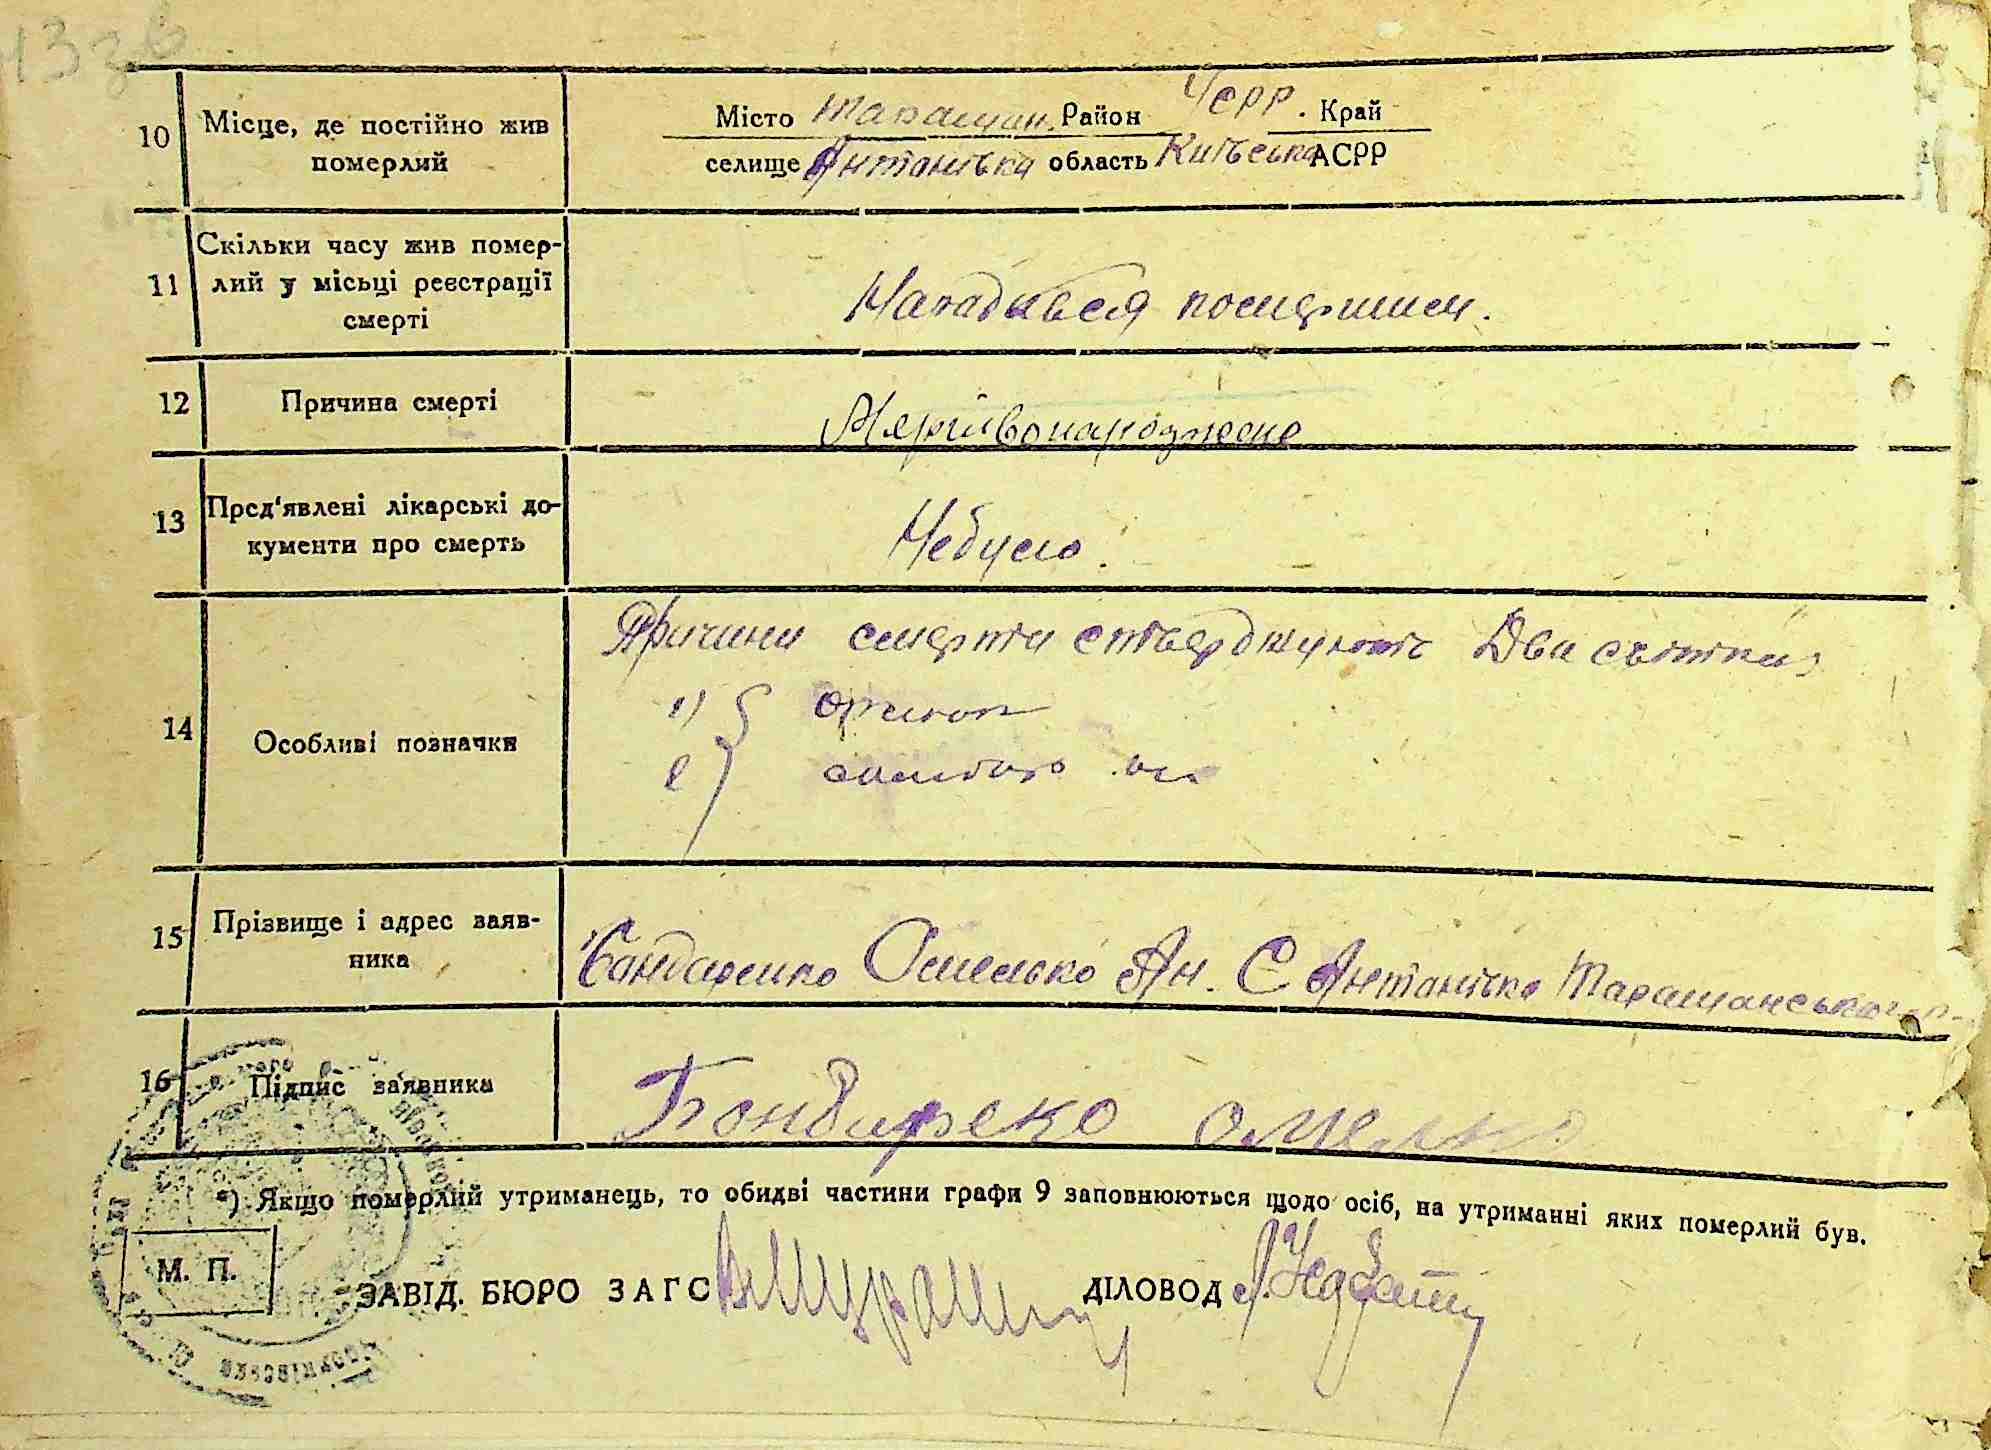 10 Місце, де постійно жив померлий
Місто Таращан. Район УСРР. Край
селище Антонівка область Київська АСРР
11 Скільки часу жив помер-
лий у місьці реєстрації
смерті
Нагадився посмершим.
12 Причина смерті
Мертвонароджене
13 Прсд'явлені лікарські до-
кументи про смерть
Небуло.
14 Особливі позначки
Причини смерти стверджують Два світки
1)
2)
15 Прізвище і адрес заяв-
ника
Бандаренко Омелько Ан. С Антонівка Таращанського р-
16 Підпис заявника
Бондиреко омелько
*) Якщо померлий утриманець, то обидві частини графи 9 заповнюються щодо осіб, на утриманні яких померлий був.
М. П.
ЗАВІД. БЮРО ЗАГС
ДІЛОВОД